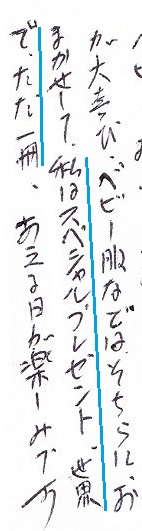 が大喜び、ベビー服などは、そちらにお
まかせして、私はスペシャルプレゼント、世界
で、ただ一冊、あえる日が楽しみです